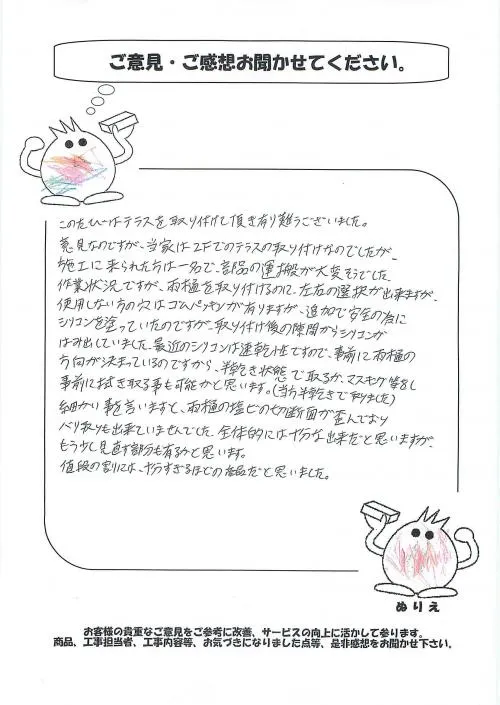 ご意見・ご感想お聞かせてください。
このたびはテラスを取り付けて頂き有り難うございました。
意見なのですが、当家は2Fでのテラスの取り付けなのでしたが、
施工に来られた方は一名で、部品の運搬が大変そうでした
作業状況ですが、雨樋を取り付けるのに、左右の選択が出来ますが、
使用しない方の穴はゴムパッキンが有りますが、追加で安全の為に
シリコンを塗っていたのですが、取り付け後の隙間からシリコンが
はみ出していました。最近のシリコンは速乾性ですので、事前に雨樋の
方向が決まっているのですから、半乾き状態で取るか、マスキング等し
事前に拭き取る事も可能かと思います。(当方半乾きで取りました)
細かい事を言いますと、雨樋の塩ビの切断面が歪んでおり
バリ取りも出来ていませんでした。全体的には十分な出来だと思いますが、
もう少し見直す部分も有るかと思います。
値段の割には、十分すぎるほどの商品だと思いました。
ぬりえ
お客様の貴重なご意見をご参考に改善、サービスの向上に活かして参ります。
商品、工事担当者、工事内容等、お気づきになりました点等、是非感想をお聞かせ下さい。